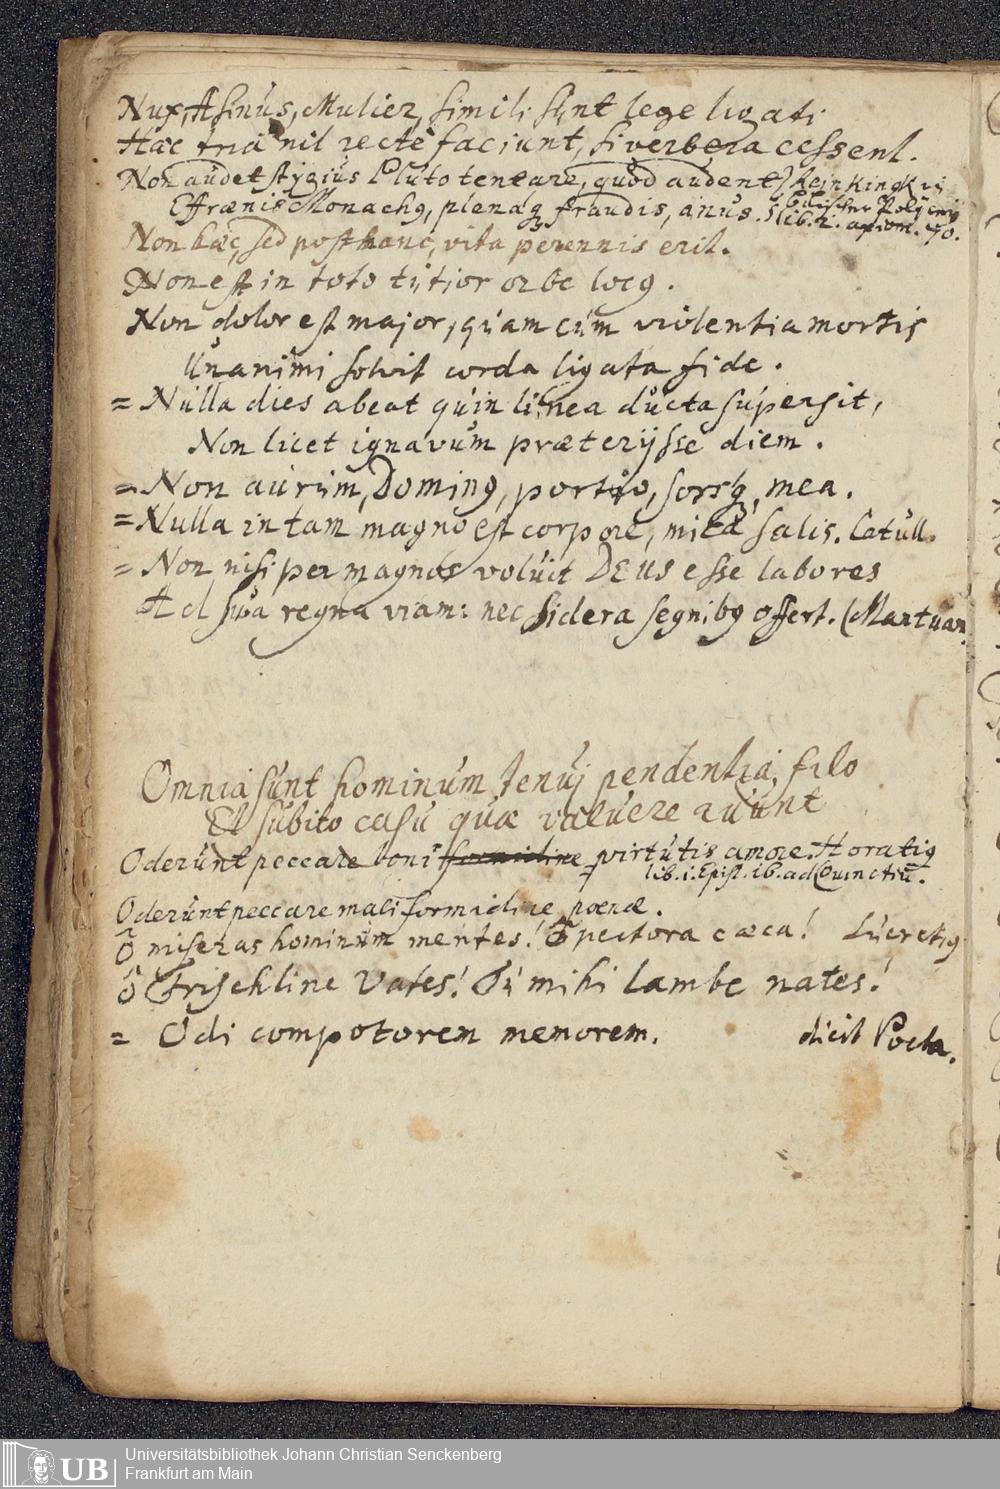 Nux, Asinus, Mulier, simili sunt lege ligati
Hæc tria nil rectè faciunt, si verbera cessent.
Non audet stygius Pluto tentare, quod audent } Reinkingk in
Effrænis Monachꝰ, plenaꝗ fraudis, anus. } biblischer Policeÿ
lib. 2. axiom. 70.
Non hæc, sed post hanc, vita perennis erit.
Non est in toto tutior orbe locꝰ.
Non dolor est major, quam cum violentia mortis
Unanimi solvit corda ligata fide.
= Nulla dies abeat quin linea ducta supersit,
Non licet ignavum præterijsse diem.
= Non aurum, Dominꝰ, portio, sorsꝗ, mea.
= Nulla in tam magno est corpore, mica salis. Catull.
= Non nisi per magnos voluit DEUS esse labores
Ad sua regna viam: nec sidera segnibꝰ offert. (Mantuan.
Omnia sunt hominum tenuj pendentia filo
Et subito casu quæ valuere ruunt
Oderunt peccare boni formidine virtutis amore. Horatiꝰ
lib. 1. Epist. 16. ad Quinctiū.
Oderunt peccare mali formidine pœnæ.
ô miseras hominum mentes! ô pectora cæca! Lucretiꝰ
ô Frischline Vates! Tu mihi lambe nates!
= Odi compotorem memorem. dicit Poeta.
UB Universitätsbibliothek Johann Christian Senckenberg
Frankfurt am Main